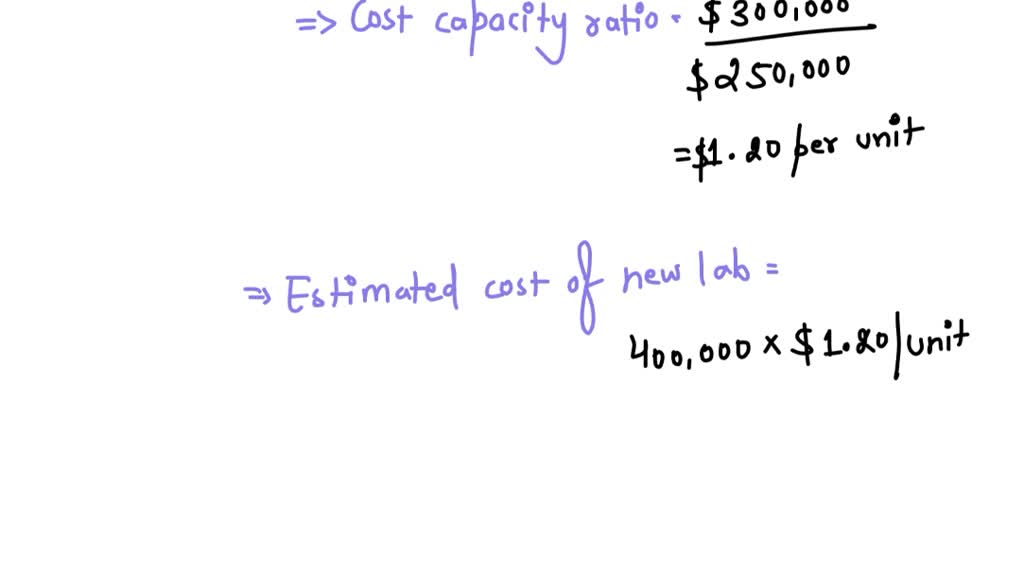 => Cost capacity ratio = $300,000
$250,000
= $1.20 per unit
=> Estimated cost of new lab =
400,000 × $1.20/unit